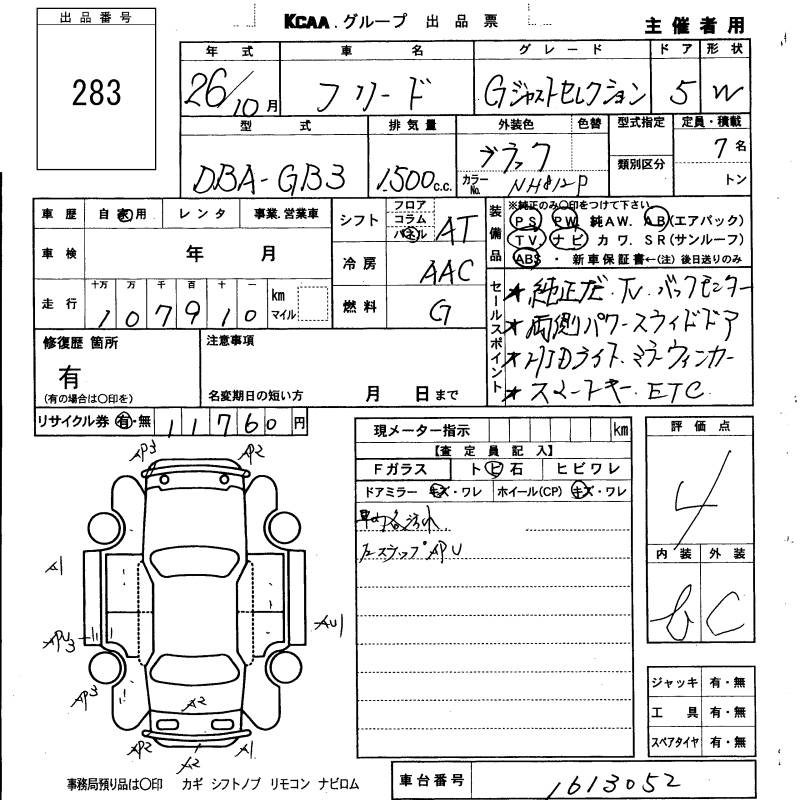 出品番号
283
KCAA.グループ 出品票
主催者用
年式 車名 グレード ドア 形状
26/10月 フリード Gジャストセレクション 5 W
型式 排気量 外装色 色替 型式指定 定員・積載
DBA-GB3 1500c.c. ブラック 類別区分 7名
カラーNo. NH812P トン
車歴 自家用 レンタ 事業.営業車
車検 年 月
走行 十万 万 千 百 十 一
107910 km マイル
シフト フロア コラム パネル AT
冷房 AAC
燃料 G
装備品
※純正のみ○印をつけて下さい
PS PW 純AW. AB(エアバック)
TV. ナビ カワ. SR(サンルーフ)
ABS ・ 新車保証書←(注)後日送りのみ
セールスポイント
★純正ナビ.TV.バックモニター
★両側パワースライドドア
★HIDライト.ミラーウィンカー
★スマートキー.ETC
修復歴 箇所
有
(有の場合は○印を)
注意事項
名変期日の短い方 月 日まで
リサイクル券 有・無 11760円
現メーター指示 km
【査定員記入】
Fガラス トビ石 ヒビワレ
ドアミラー キズ・ワレ ホイール(CP) キズ・ワレ
車内各汚れ
APU
評価点
4
内装 外装
b C
ジャッキ 有・無
工具 有・無
スペアタイヤ 有・無
AP3 A2
A1
APU3 AU1
AP3
A2
AP2 A2 A1
事務局預り品は○印 カギ シフトノブ リモコン ナビロム
車台番号 1613052